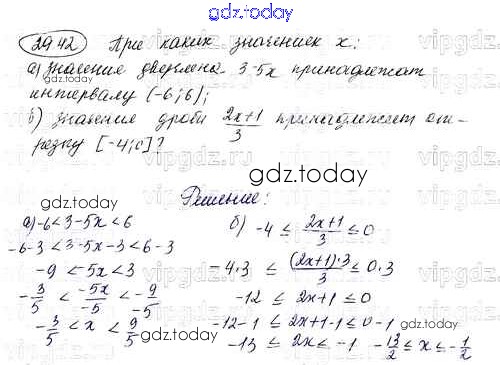 gdz.today
29.42 При каких значениях x:
а) значения двучлена 3-5x принадлежат
интервалу (-6; 6);
б) значения дроби \frac{2x+1}{3} принадлежат от-
резку [-4; 0]?
gdz.today
Решение:
а) -6 < 3-5x < 6
-6-3 < 3-5x-3 < 6-3
-9 < -5x < 3
-\frac{3}{5} < \frac{-5x}{-5} < \frac{-9}{-5}
-\frac{3}{5} < x < \frac{9}{5}
б) -4 ≤ \frac{2x+1}{3} ≤ 0
-4·3 ≤ \frac{(2x+1)·3}{3} ≤ 0·3
-12 ≤ 2x+1 ≤ 0
-12-1 ≤ 2x+1-1 ≤ 0-1
-13 ≤ 2x ≤ -1 -\frac{13}{2} ≤ x ≤ -\frac{1}{2}
gdz.today
gdz.today
gdz.today
vipgdz.ru